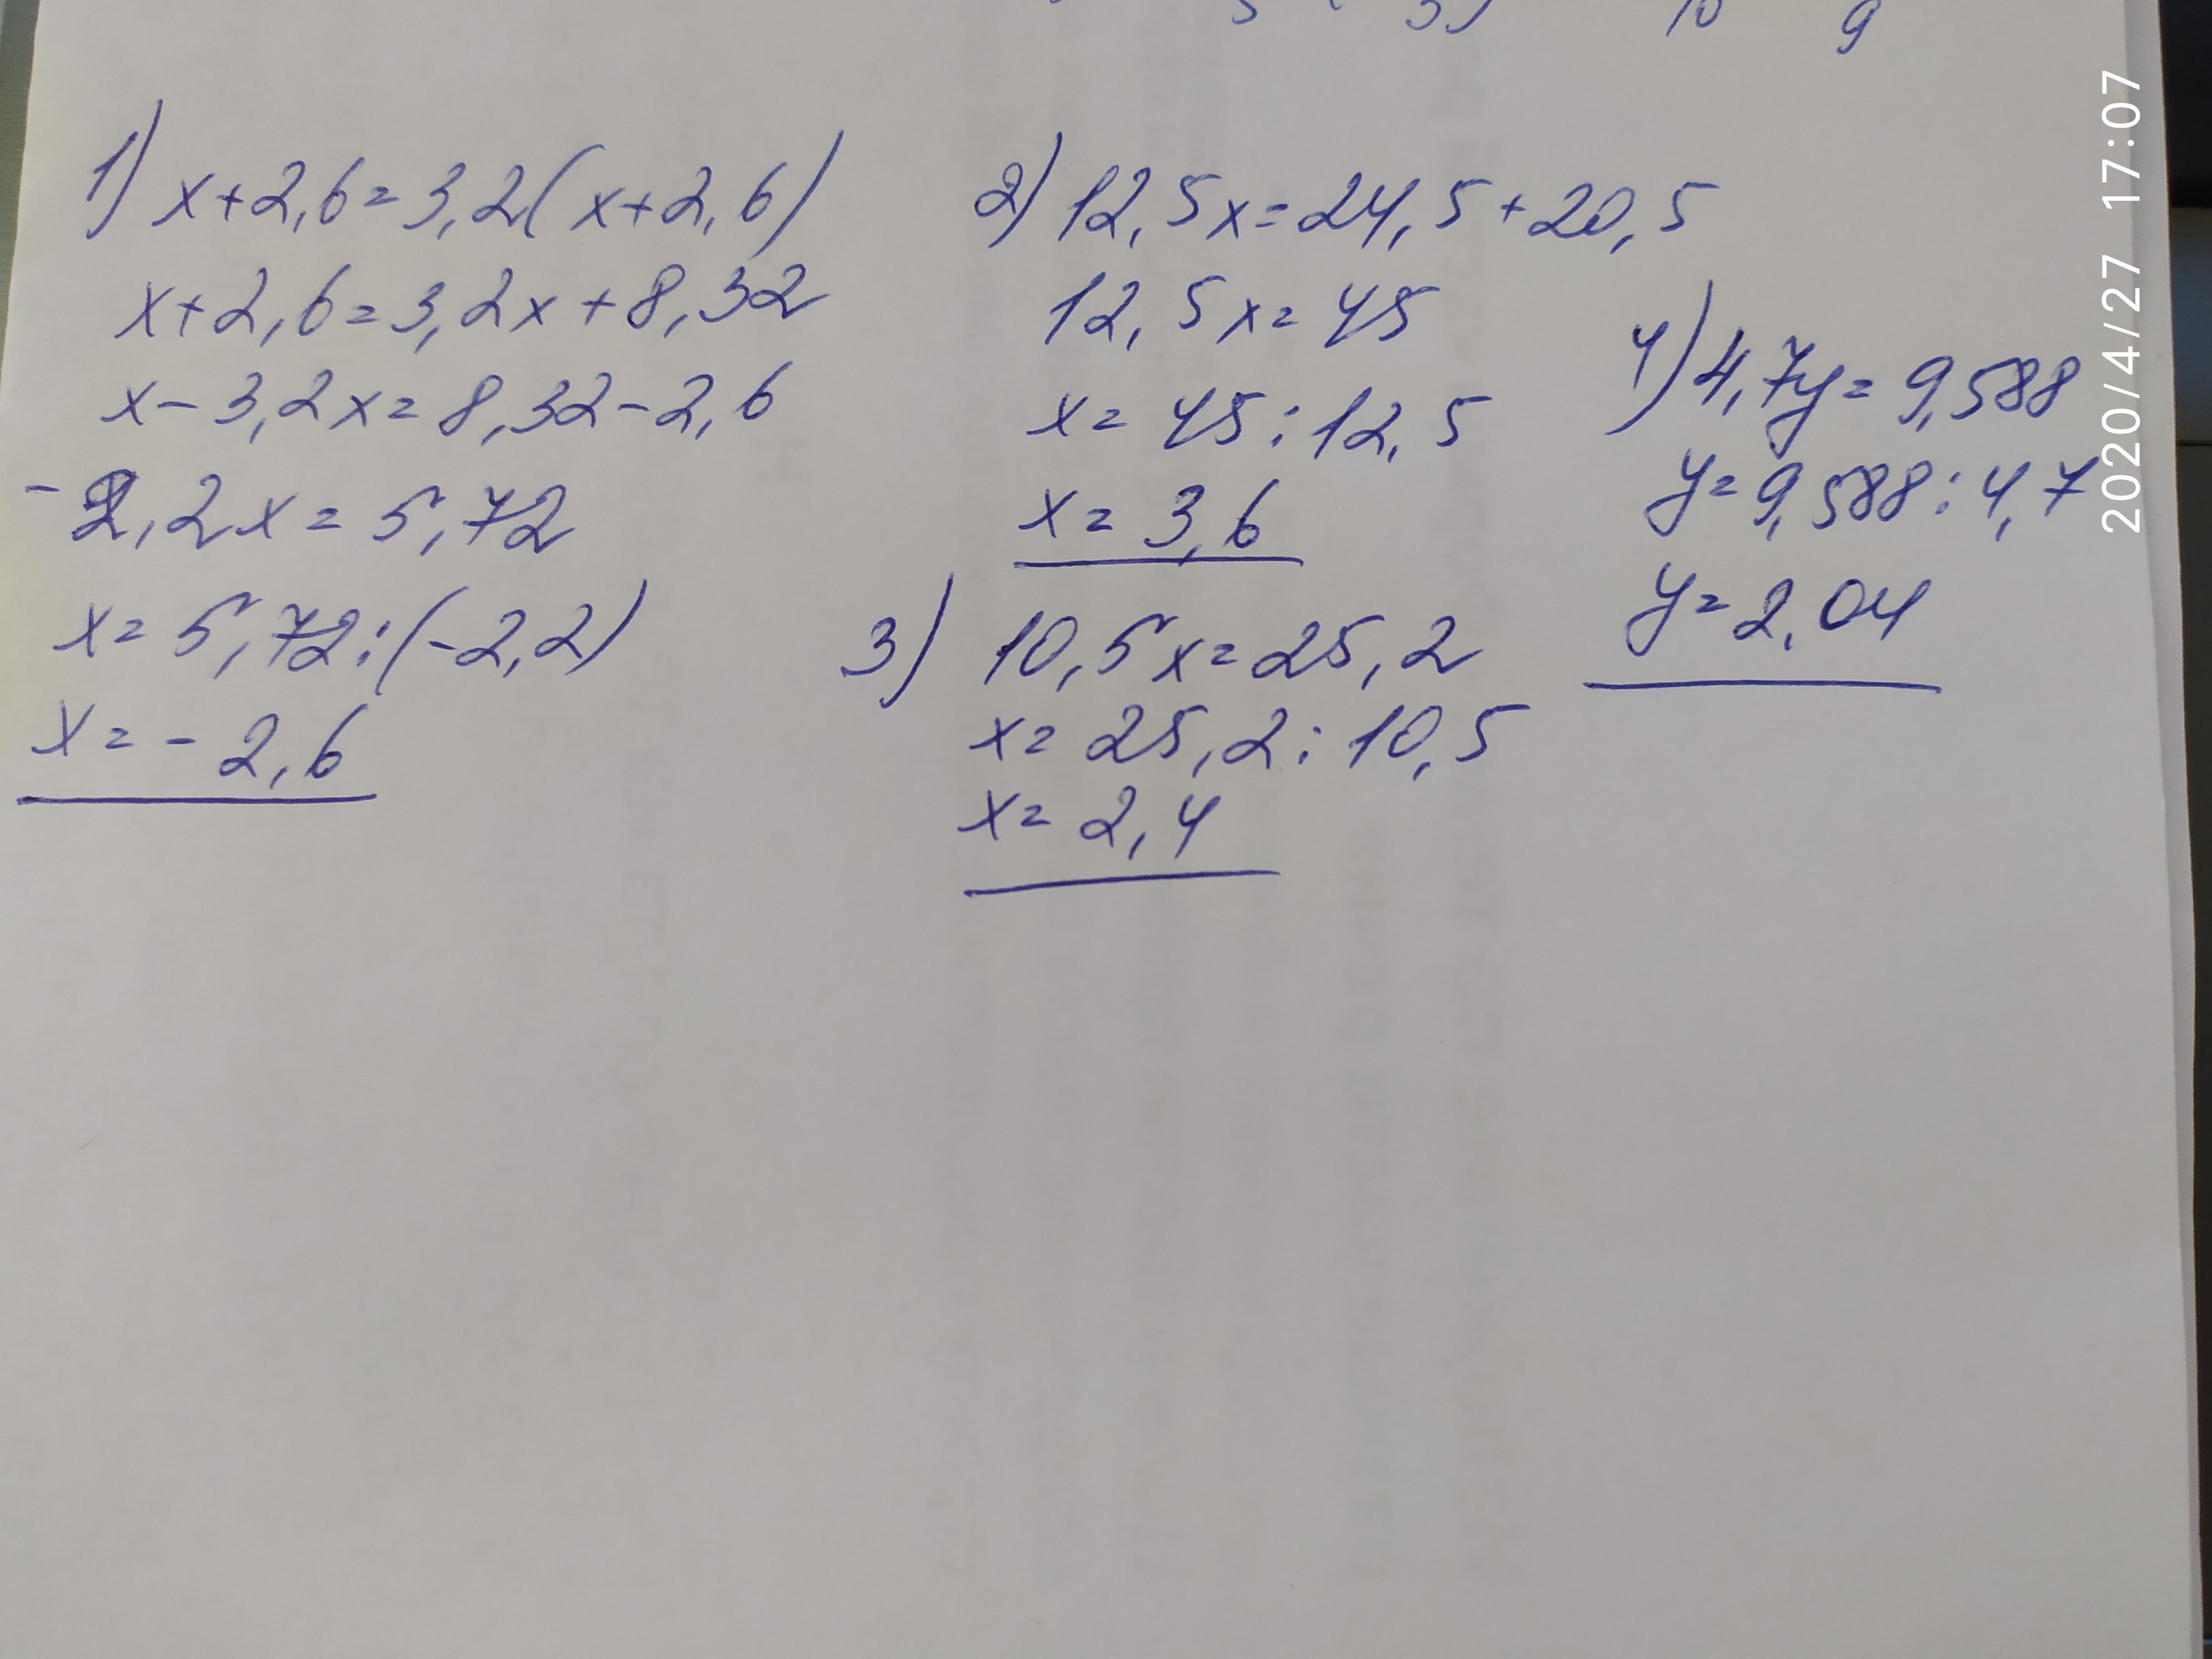 10 9
1) x+2,6=3,2(x+2,6)
x+2,6=3,2x+8,32
x-3,2x=8,32-2,6
-2,2x=5,72
x=5,72:(-2,2)
x=-2,6
2) 12,5x=24,5+20,5
12,5x=45
x=45:12,5
x=3,6
3) 10,5x=25,2
x=25,2:10,5
x=2,4
4) 4,7y=9,588
y=9,588:4,7
y=2,04
2020/4/27 17:07